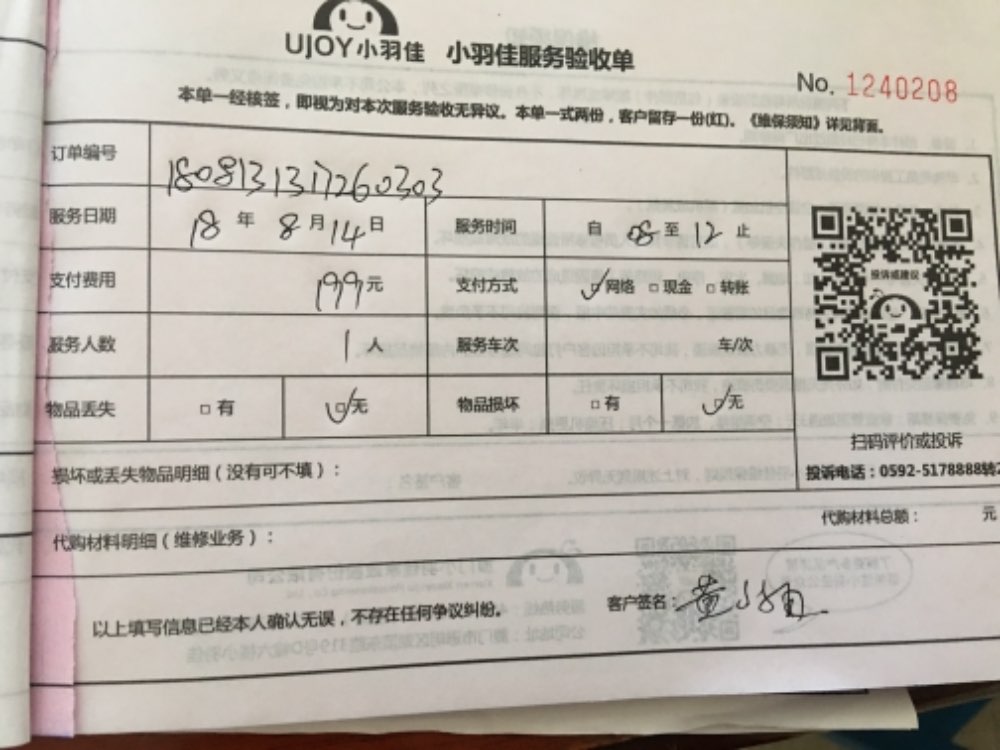 UJOY小羽佳 小羽佳服务验收单
No. 1240208
本单一经核签，即视为对本次服务验收无异议。本单一式两份，客户留存一份(红)。《维保须知》详见背面。
订单编号 1808131317260303
服务日期 18 年 8 月 14 日 服务时间 自 08 至 12 止
投诉或建议
支付费用 199 元 支付方式 网络 现金 转账
服务人数 1 人 服务车次 车/次
物品丢失 有 无 物品损坏 有 无
扫码评价或投诉
损坏或丢失物品明细（没有可不填）：
投诉电话：0592-5178888转2
代购材料总额： 元
代购材料明细（维修业务）：
以上填写信息已经本人确认无误，不存在任何争议纠纷。
客户签名：黄小